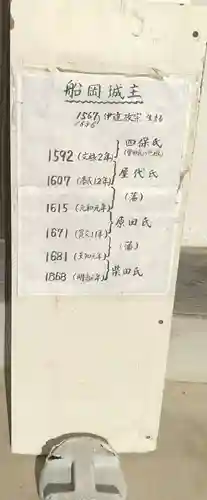 船岡城主
1567 伊達政宗 生まる
(1636)
四保氏
1592(文禄2年)
屋代氏
1607(慶長12年)
(蕃)
1615(元和元年)
原田氏
1671(寛文11年)
(蕃)
1681(天和元年)
柴田氏
1868(明治元年)